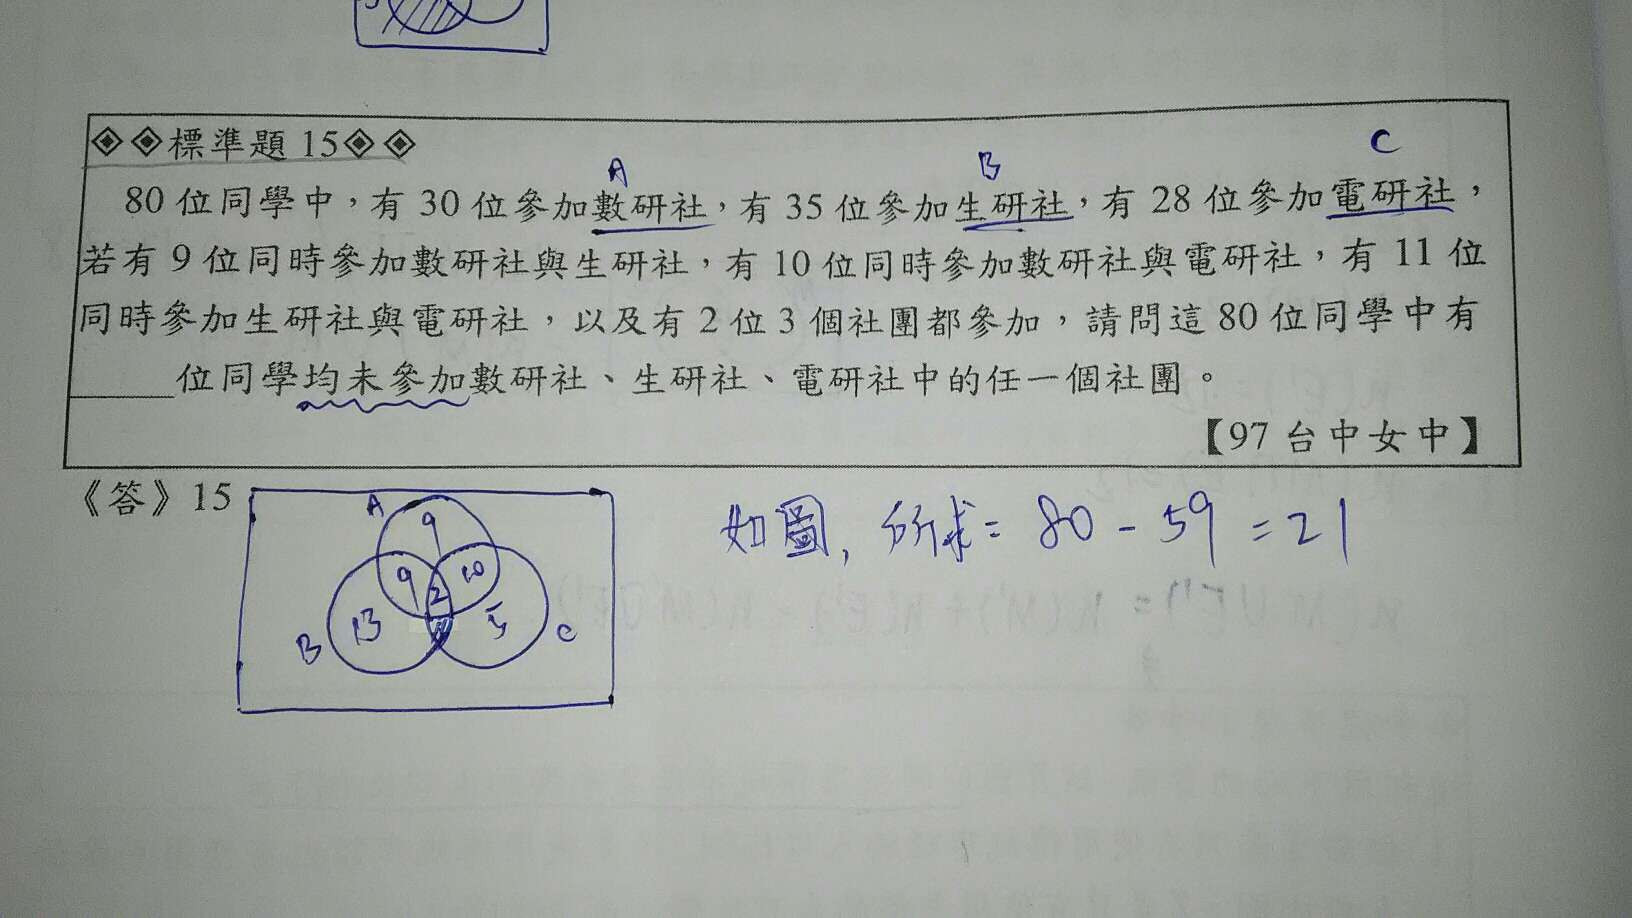 ◈◈標準題 15◈◈
A B C
80 位同學中，有 30 位參加數研社，有 35 位參加生研社，有 28 位參加電研社，
若有 9 位同時參加數研社與生研社，有 10 位同時參加數研社與電研社，有 11 位
同時參加生研社與電研社，以及有 2 位 3 個社團都參加，請問這 80 位同學中有
_____位同學均未參加數研社、生研社、電研社中的任一個社團。
【97 台中女中】
《答》15
A 9
如圖, 所求 = 80 - 59 = 21
9 2 10
B 13 5 C